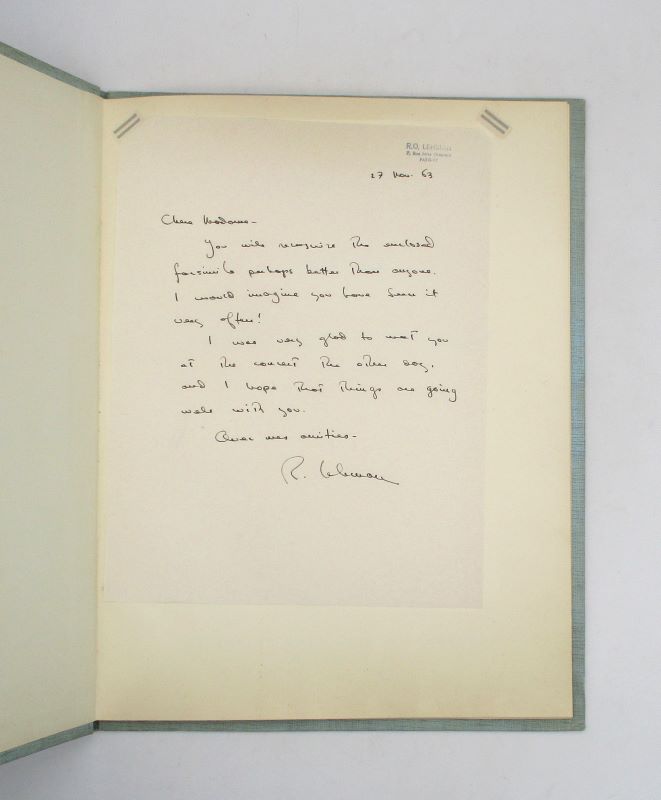 R.O. LEHMAN
PARIS
27 Nov. 63
Chère Madame-
You will recognize the enclosed
facsimile perhaps better than anyone.
I would imagine you have seen it
very often!
I was very glad to meet you
at the concert the other day,
and I hope that things are going
well with you.
Avec mes amitiés-
R. Lehman